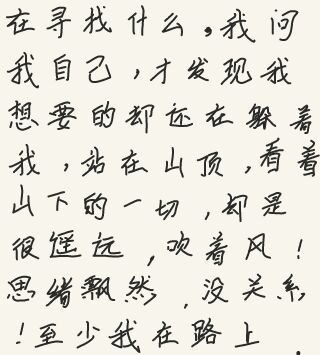 在寻找什么，我问
我自己，才发现我
想要的却还在躲着
我，站在山顶，看着
山下的一切，却是
很遥远，吹着风！
思绪飘然，没关系
！至少我在路上.